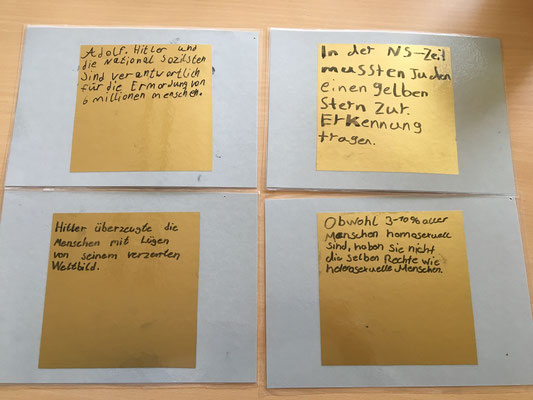 Adolf. Hitler und
die National Sozilsten
sind verantwortlich
für die Ermordung von
6 millionen menschen.
In der NS-Zeit
mussten Juden
einen gelben
Stern zur.
Erkennung
tragen.
Hitler überzeugte die
Menschen mit Lügen
von seinem verzerrten
Weltbild.
Obwohl 3-10% aller
Menschen homosexuell
sind, haben sie nicht
die selben Rechte wie
heterosexuelle Menschen.